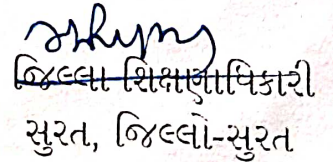 જિલ્લા શિક્ષણાધિકારી
સુરત, જિલ્લો-સુરત